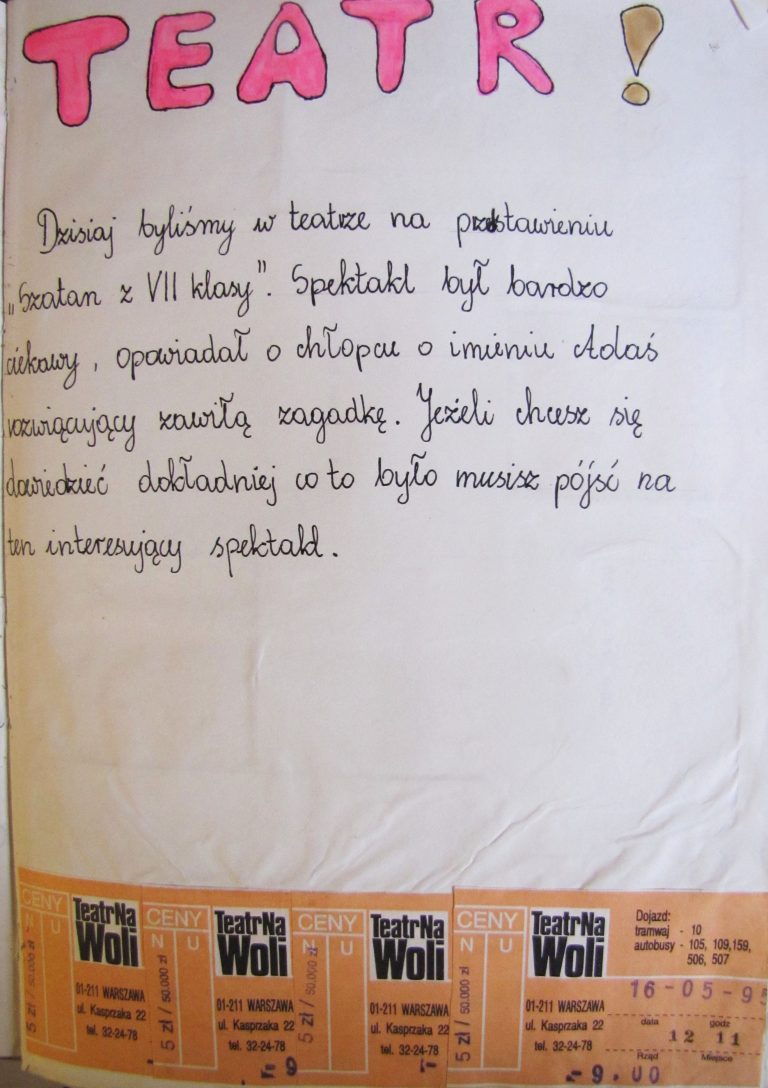 TEATR!
Dzisiaj byliśmy w teatrze na przedstawieniu
„Szatan z VII klasy”. Spektakl był bardzo
ciekawy, opowiadał o chłopcu o imieniu Adaś
rozwiącujący zawiłą zagadkę. Jeżeli chcesz się
dowiedzieć dokładniej co to było musisz pójść na
ten interesujący spektakl.
CENY
N U
5 zł / 50.000 zł
Teatr Na
Woli
01-211 WARSZAWA
ul. Kasprzaka 22
tel. 32-24-78
CENY
N U
5 zł / 50.000 zł
Teatr Na
Woli
01-211 WARSZAWA
ul. Kasprzaka 22
tel. 32-24-78
- 9
CENY
N U
5 zł / 50.000 zł
Teatr Na
Woli
01-211 WARSZAWA
ul. Kasprzaka 22
tel. 32-24-78
CENY
N U
5 zł / 50.000 zł
Teatr Na
Woli
01-211 WARSZAWA
ul. Kasprzaka 22
tel. 32-24-78
Dojazd:
tramwaj - 10
autobusy - 105, 109,159,
506, 507
16-05-9
data godz
12 11
Rząd Miejsce
- 9.00